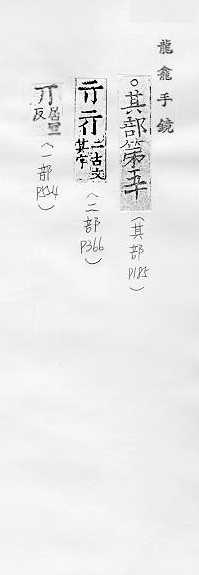 龍龕手鏡
○其部第五十
(其部P185)
亓 二古文其字
(二部P366)
丌 居 反
(一部P524)